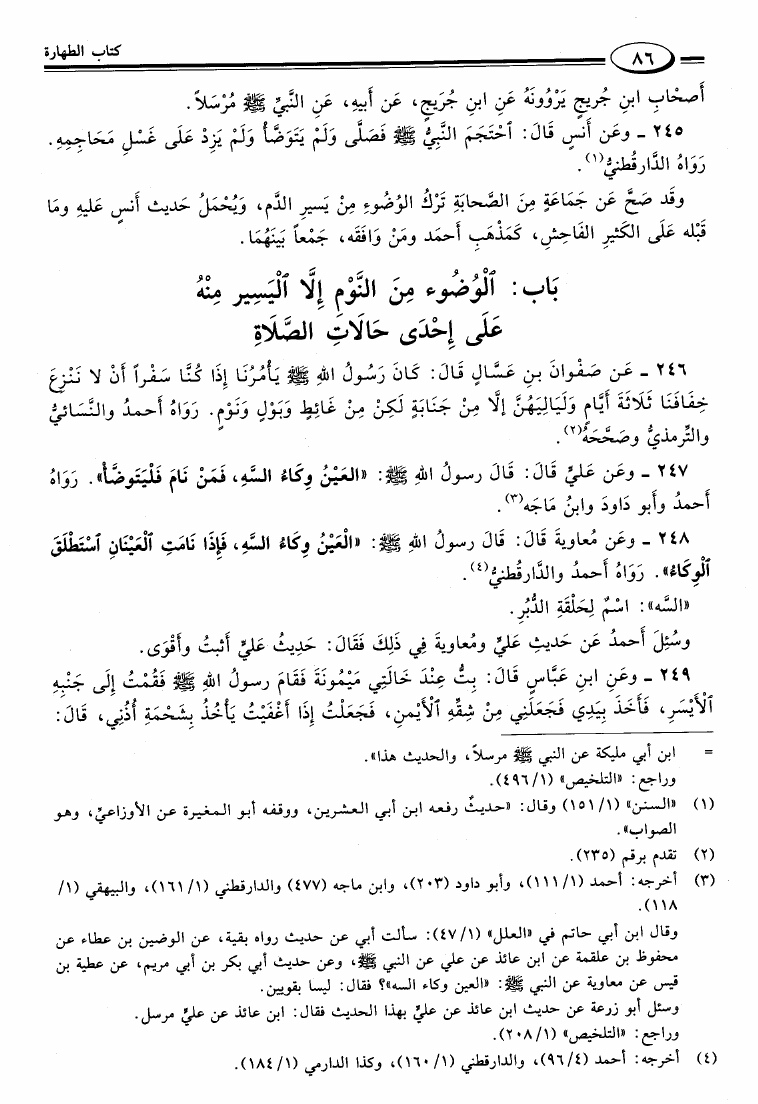 كتاب الطهارة
٨٦
أصحابِ ابنِ جُريجٍ يَرْوُونَهُ عَنِ ابنِ جُرَيجٍ، عَن أَبيهِ، عَنِ النَّبيِّ ﷺ مُرْسَلاً.
٢٤٥ ـ وعَن أَنسٍ قَالَ: ٱحْتَجَمَ النَّبيُّ ﷺ فَصَلَّى وَلَمْ يَتَوَضَّأْ وَلَمْ يَزِدْ عَلَى غَسْلِ مَحَاجِمِهِ.
رَوَاهُ الدَّارقُطنيُّ(١).
وقَد صَحَّ عَن جَمَاعَةٍ مِنَ الصَّحابَةِ تَرْكُ الوُضُوءِ مِنْ يَسيرِ الدَّمِ، ويُحْمَلُ حَديث أَنسٍ عليهِ ومَا
قَبْله عَلَى الكَثيرِ الفَاحِشِ، كَمَذْهَبِ أَحمَد ومَنْ وَافَقَه، جَمْعاً بَينَهُمَا.
بَاب: ٱلْوُضُوء مِنَ النَّوْمِ إِلَّا ٱلْيَسِير مِنْهُ
عَلَى إِحْدَى حَالَاتِ الصَّلَاةِ
٢٤٦ ـ عَن صَفْوانَ بنِ عَسَّالٍ قَالَ: كَانَ رَسُولُ اللهِ ﷺ يَأمُرُنَا إِذَا كُنَّا سَفْراً أَنْ لا نَنْزِعَ
خِفَافَنَا ثَلَاثَةَ أَيَّامٍ وَلَيَالِيَهُنَّ إِلَّا مِنْ جَنَابَةٍ لَكِنْ مِنْ غَائِطٍ وَبَوْلٍ وَنَوْمٍ. رَوَاهُ أَحمدُ والنَّسَائيُّ
والتِّرمذيُّ وصَحَّحَهُ(٢).
٢٤٧ ـ وعَن عَليٍّ قَالَ: قَالَ رسولُ اللهِ ﷺ: «العَيْنُ وِكَاءُ السَّهِ، فَمَنْ نَامَ فَلْيَتَوضَّأْ». رَوَاهُ
أَحمدُ وأَبو دَاودَ وابنُ مَاجَه(٣).
٢٤٨ ـ وعَن مُعاويةَ قَالَ: قَالَ رسولُ اللهِ ﷺ: «الْعَيْنُ وِكَاءُ السَّهِ، فَإِذَا نَامَتِ ٱلْعَيْنَانِ ٱسْتَطْلَقَ
ٱلْوِكَاءُ». رَوَاهُ أَحمدُ والدَّارقُطنيُّ(٤).
«السَّه»: اسْمٌ لِحَلْقَةِ الدُّبُرِ.
وسُئِلَ أَحمدُ عَن حَديثِ عَليٍّ ومُعاويةَ فِي ذَلِكَ فَقَالَ: حَدِيثُ عَليٍّ أَثبتُ وأَقْوَى.
٢٤٩ ـ وعَنِ ابنِ عَبَّاسٍ قَالَ: بِتُّ عِنْدَ خَالَتِي مَيْمُونَةَ فَقَامَ رسولُ اللهِ ﷺ فَقُمْتُ إِلَى جَنْبِهِ
ٱلْأَيْسَرِ، فَأَخَذَ بِيَدِي فَجَعَلَنِي مِنْ شِقِّهِ ٱلْأَيْمنِ، فَجَعَلْتُ إِذَا أَغْفَيْتُ يَأْخُذُ بِشَحْمَةِ أُذُنِي، قَالَ:
= ابن أبي مليكة عن النبي ﷺ مرسلاً، والحديث هذا».
وراجع: «التلخيص» (٤٩٦/١).
(١) «السنن» (١٥١/١) وقال: «حديثٌ رفعه ابن أبي العشرين، ووقفه أبو المغيرة عن الأوزاعيِّ، وهو
الصواب».
(٢) تقدم برقم (٢٣٥).
(٣) أخرجه: أحمد (١١١/١)، وأبو داود (٢٠٣)، وابن ماجه (٤٧٧) والدارقطني (١٦١/١)، والبيهقي (١/
١١٨).
وقال ابن أبي حاتم في «العلل» (٤٧/١): سألت أبي عن حديث رواه بقية، عن الوضين بن عطاء عن
محفوظ بن علقمة عن ابن عائذ عن علي عن النبي ﷺ، وعن حديث أبي بكر بن أبي مريم، عن عطية بن
قيس عن معاوية عن النبي ﷺ: «العين وكاء السه»؟ فقال: ليسا بقويين.
وسئل أبو زرعة عن حديث ابن عائذ عن عليٍّ بهذا الحديث فقال: ابن عائذ عن عليٍّ مرسل.
وراجع: «التلخيص» (٢٠٨/١).
(٤) أخرجه: أحمد (٩٦/٤)، والدارقطني (١٦٠/١)، وكذا الدارمي (١٨٤/١).